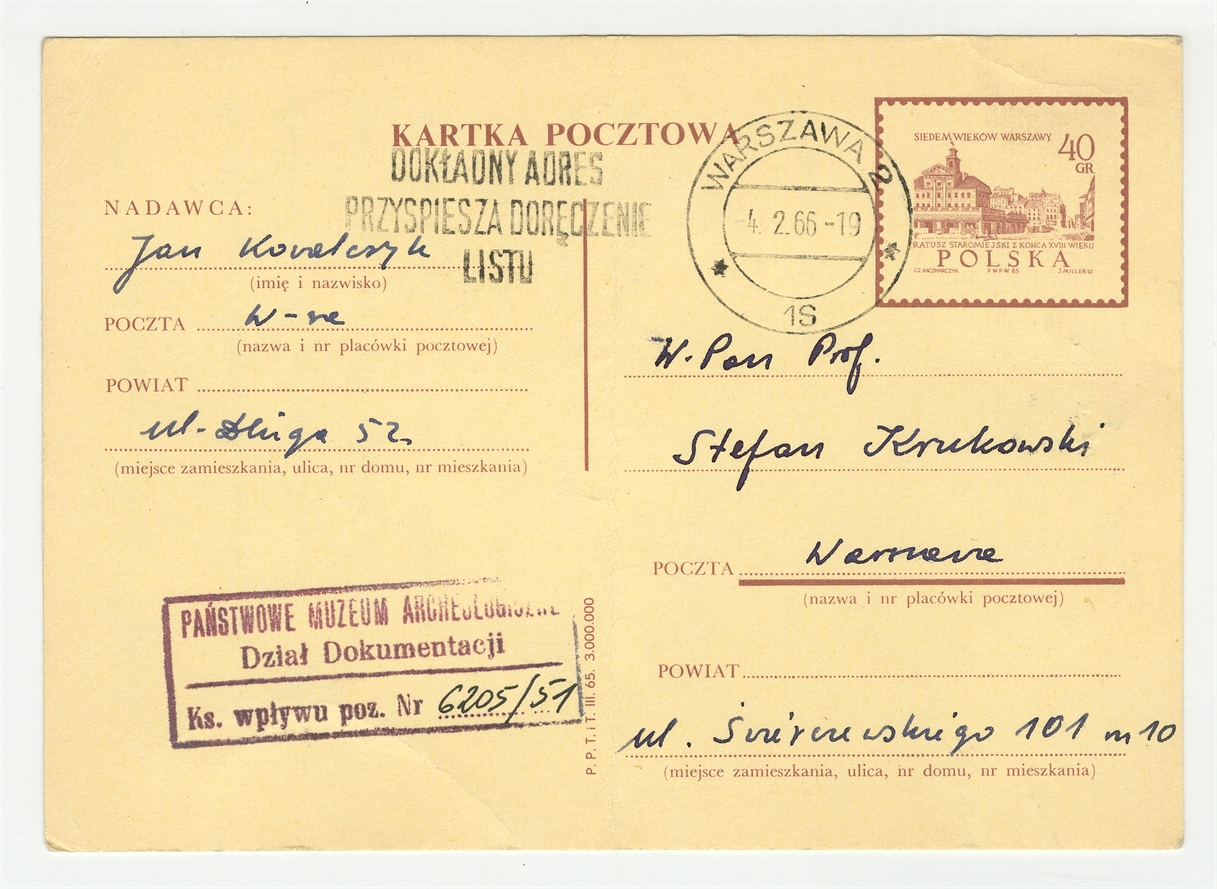 KARTKA POCZTOWA
DOKŁADNY ADRES
PRZYSPIESZA DORĘCZENIE
LISTU
WARSZAWA 2
-4. 2.66 -19
1S
SIEDEM WIEKÓW WARSZAWY
40
GR
RATUSZ STAROMIEJSKI Z KOŃCA XVIII WIEKU
POLSKA
CZ. KACZMARCZYK P W P W 65 J. MILLER SC
NADAWCA:
Jan Kowalczyk
(imię i nazwisko)
POCZTA W-wa
(nazwa i nr placówki pocztowej)
POWIAT
ul. Długa 52
(miejsce zamieszkania, ulica, nr domu, nr mieszkania)
PAŃSTWOWE MUZEUM ARCHEOLOGICZNE
Dział Dokumentacji
Ks. wpływu poz. Nr 6205/51
P. P. T. i T. III. 65. 3.000.000
W. Pan Prof.
Stefan Krukowski
POCZTA Warszawa
(nazwa i nr placówki pocztowej)
POWIAT
ul. Świerczewskiego 101 m 10
(miejsce zamieszkania, ulica, nr domu, nr mieszkania)